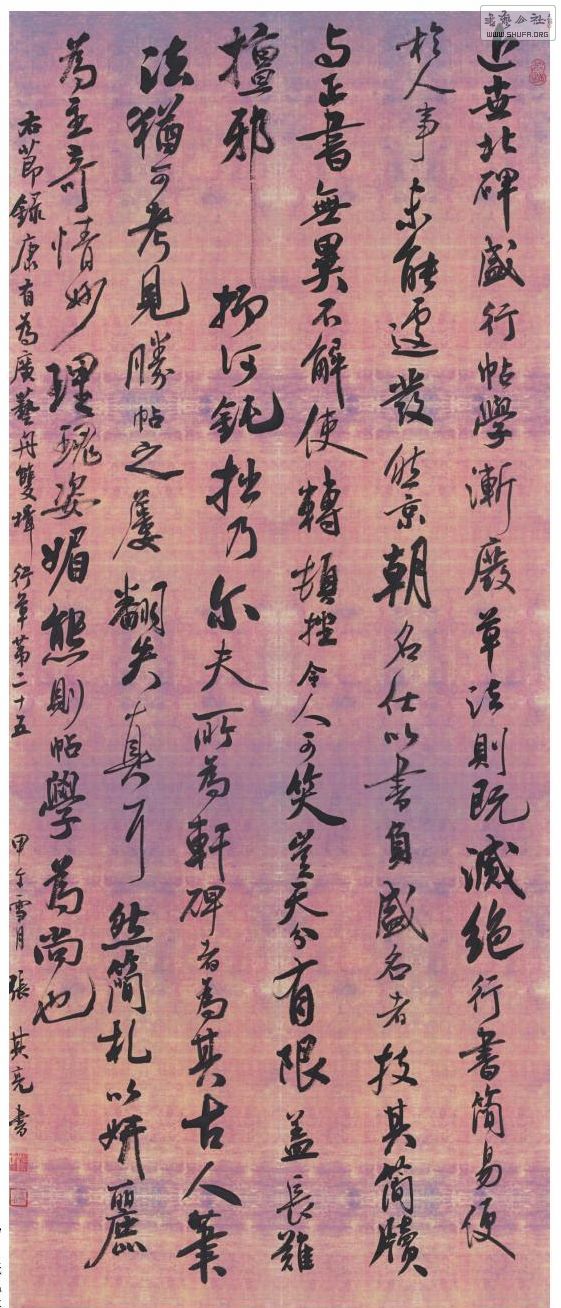 近世北碑盛行帖學漸廢草法則既滅絕行書簡易便
於人事未能遽發然京朝名仕以書負盛名者技其簡牘
与正書無異不解使轉頓挫令人可笑豈天分有限盖長難
擅邪抑何鈍拙乃尔夫所為軒碑者為其古人筆
法猶可考見勝帖之屢翻失真耳然簡札以妍麗
為主奇情妙理瑰姿媚態則帖學為尚也
右節錄康有為廣藝舟雙楫 行草第二十五 甲午雪月 張其亮書
書藝公社
WWW.SHUFA.ORG